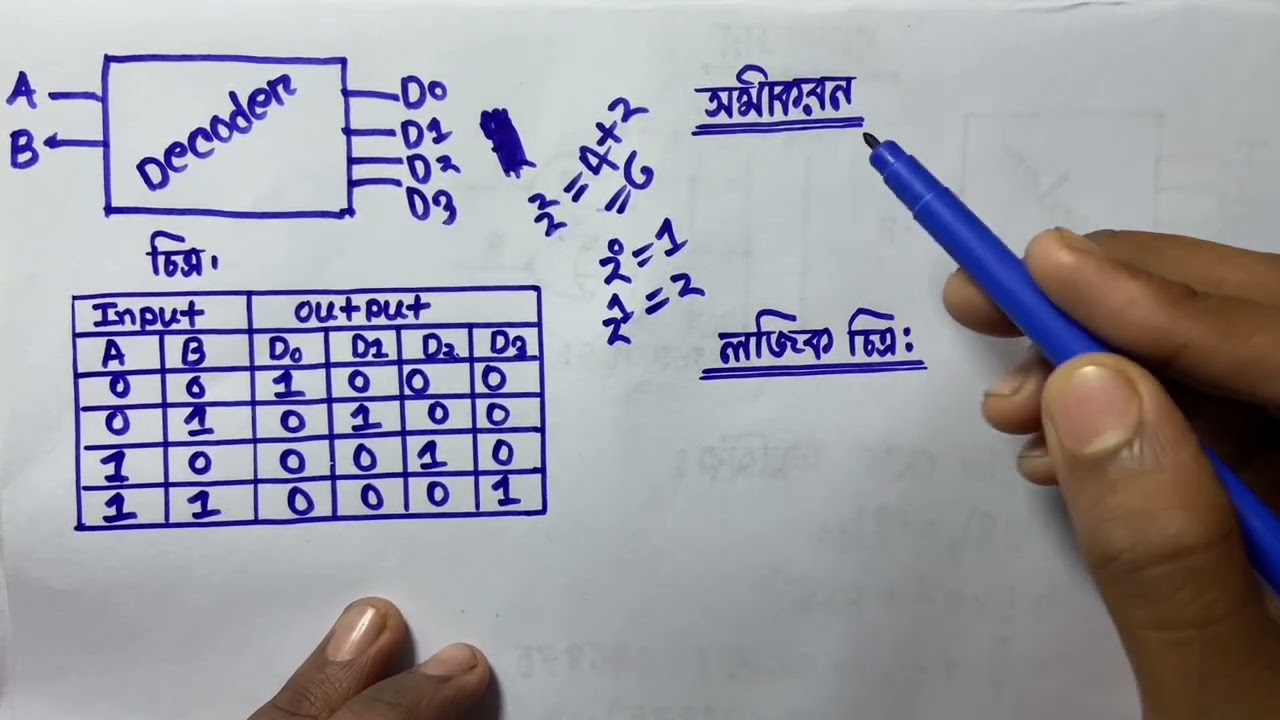 A
B
Decoder
D0
D1
D2
D3
চিত্র।
Input Output
A B D0 D1 D2 D3
0 0 1 0 0 0
0 1 0 1 0 0
1 0 0 0 1 0
1 1 0 0 0 1
2² = 4 × 2
= 6
2⁰ = 1
2¹ = 2
সমীকরন
লজিক চিত্র: